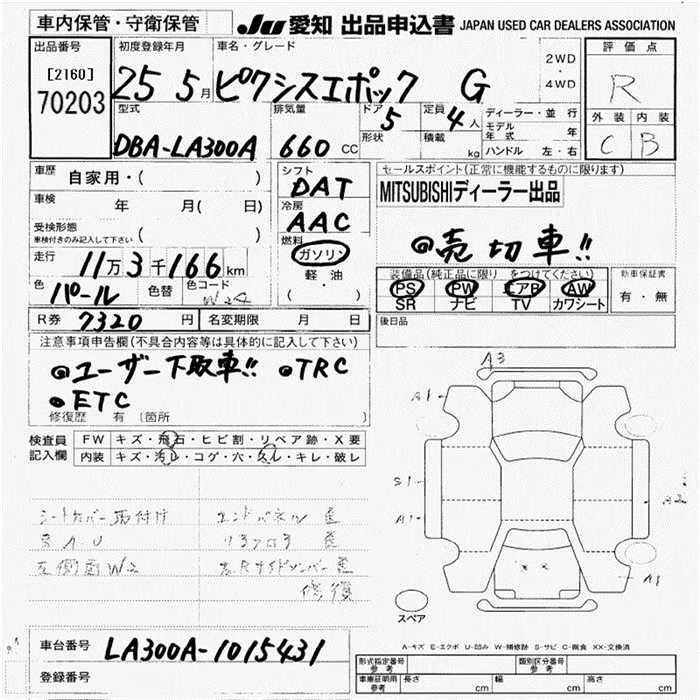 車内保管・守衛保管
JU 愛知 出品申込書 JAPAN USED CAR DEALERS ASSOCIATION
出品番号 初度登録年月 車名・グレード 2WD ・ 4WD 評価点
[2160]
70203 25 5月 ピクシスエポック G R
型式 排気量 ドア 5 定員 4人 ディーラー・並行 外装 内装
形状 積載 kg モデル年式 年
DBA-LA300A 660 CC ハンドル 左・右 C B
車歴 自家用・( ) シフト DAT セールスポイント(正常に機能するものに限ります)
車検 年 月( 日) 冷房 AAC MITSUBISHIディーラー出品
受検形態 車検付きのみ記入して下さい ( ) 燃料 ガソリン ◎売切車!!
走行 11万3千166km 軽油
色 パール 色替 色コード W24 ( )
装備品(純正品に限り をつけてください) 新車保証書
PS PW エアB AW 有・無
SR ナビ TV カワシート
R券 7320 円 名変期限 月 日 後日品
注意事項申告欄(不具合内容等は具体的に記入して下さい)
◎ユーザー下取車!! ●TRC
●ETC
修復歴 有 [箇所
検査員記入欄 FW キズ・飛石・ヒビ割・リペア跡・X要
内装 キズ・汚レ・コゲ・穴・スレ・キレ・破レ
シートカバー取付け エンドパネル
左側面W2
修復
A3
A1
S1
A1
A2
A1
スペア
A-キズ E-エクボ U-凹み W-補修跡 S-サビ C-腐食 XX-交換済
車台番号 LA300A-1015431
登録番号
形式指定番号 参考 類別区分番号 参考
車庫証明用 参考 長さ cm 幅 cm 高さ cm